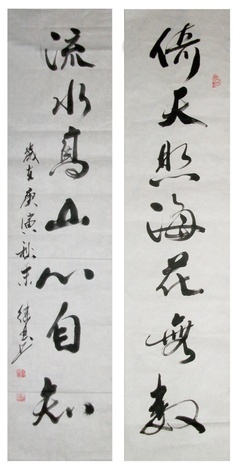 倚天照海花無數
流水高山心自知
歲在庚寅秋末